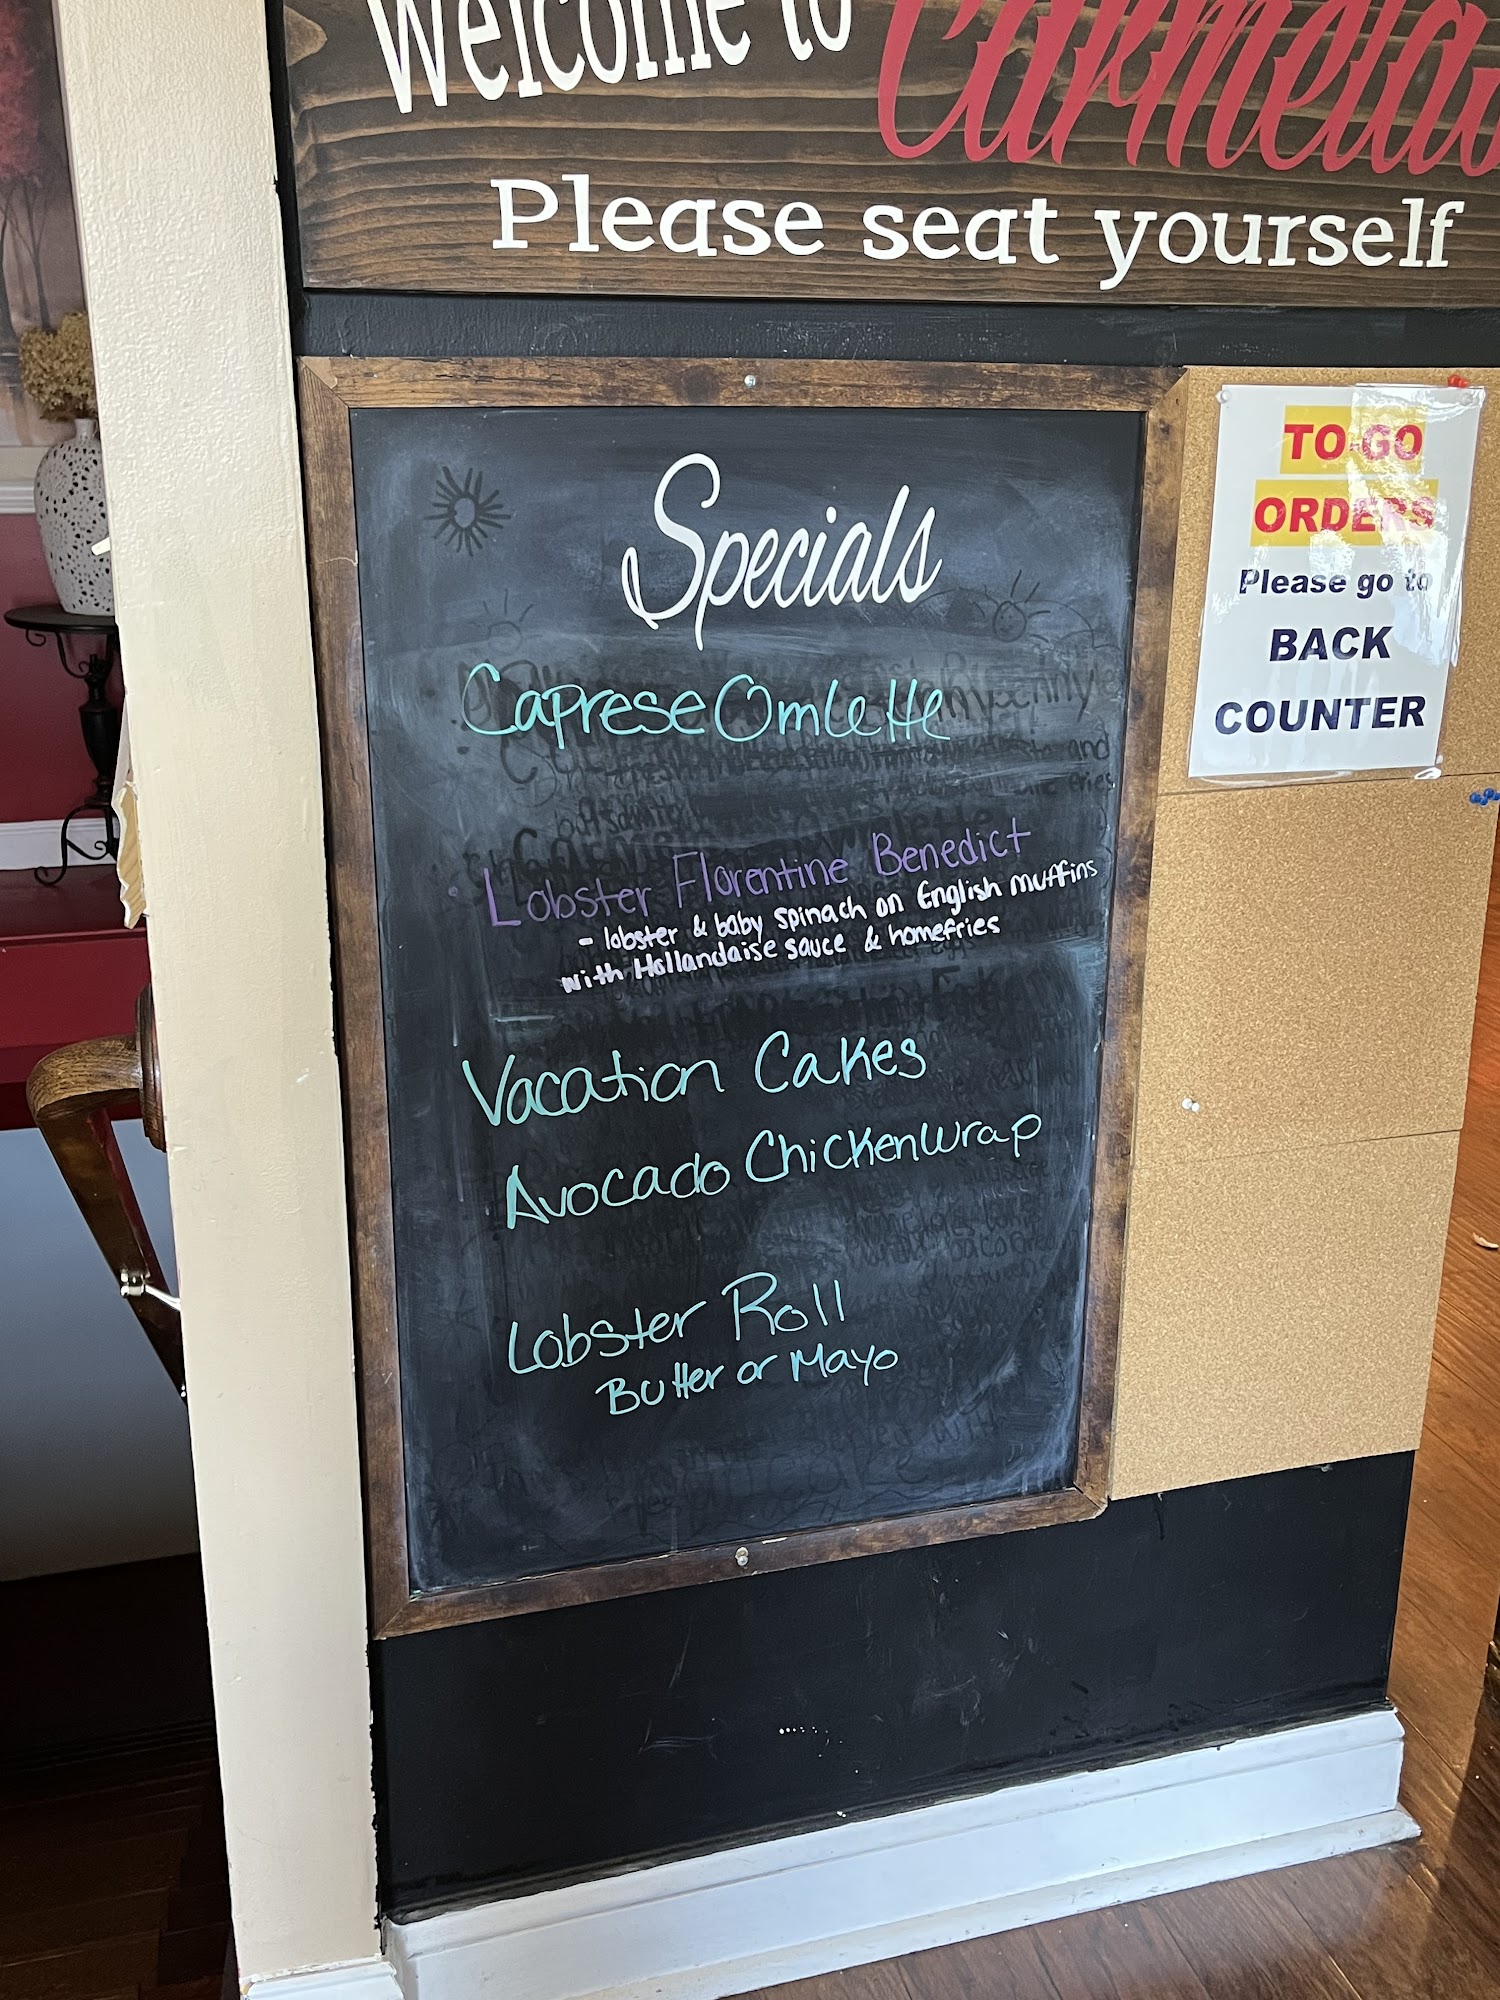 Welcome to Carmela's
Please seat yourself
Specials
Caprese Omlette
• Lobster Florentine Benedict
- lobster & baby spinach on English muffins
with Hollandaise sauce & homefries
Vacation Cakes
Avocado Chicken Wrap
Lobster Roll
Butter or Mayo
TO-GO
ORDERS
Please go to
BACK
COUNTER